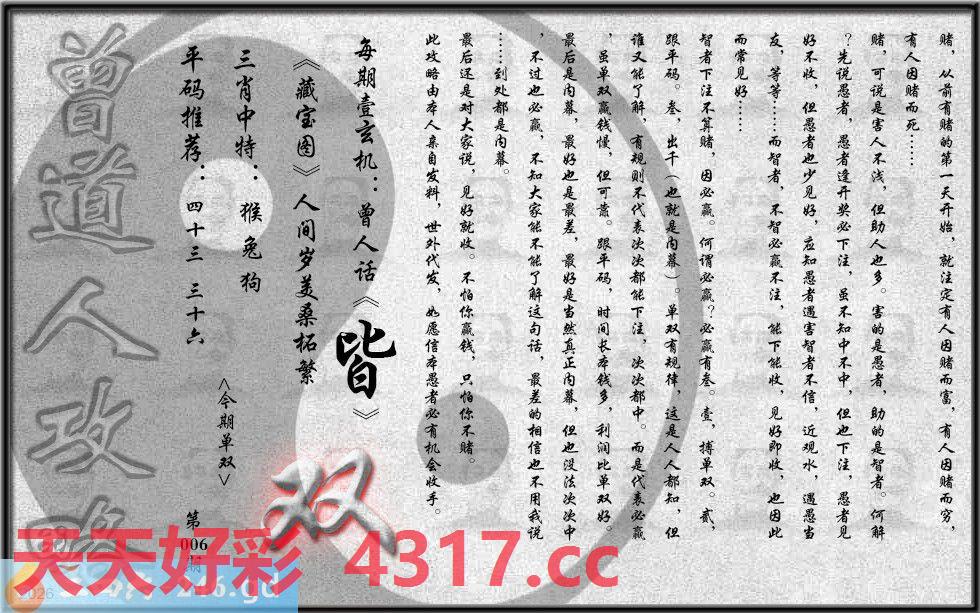 赌，从前有赌的第一天开始，就注定有人因赌而富，有人因赌而穷，
有人因赌而死……
赌，可说是害人不浅，但助人也多。害的是愚者，助的是智者。何解
？先说愚者，愚者逢开奖必下注，虽不知中不中，但也下注，愚者见
好不收，但愚者也少见好，应知愚者遇害智者不信，近观水，遇愚当
友，等等……而智者，不智必赢不注，能下能收，见好即收，也因此
而常见好……
智者下注不算赌，因必赢。何谓必赢？必赢有叁。壹，搏单双。贰，
跟平码。叁，出千（也就是内幕）。单双有规律，这是人人都知，但
谁又能了解，有规则不代表次次都能下注，次次都中。而是代表必赢
，虽单双赢钱慢，但可靠。跟平码，时间长本钱多，利润比单双好。
最后是内幕，最好也是最差，最好是当然真正内幕，但也没法次次中
，不过也必赢，不知大家能不能了解这句话，最差的相信也不用我说
……到处都是内幕。
最后还是对大家说，见好就收。不怕你赢钱，只怕你不赌。
此攻略由本人亲自发料，世外代发，如愿信本愚者必有机会收手。
每期壹玄机：曾人话《皆》
《藏宝图》人间岁美桑柘繁
三肖中特：猴兔狗
平码推荐：四十三 三十六
<今期单双>
双
第
006
期
曾道人攻略
天天好彩 4317.cc
2026